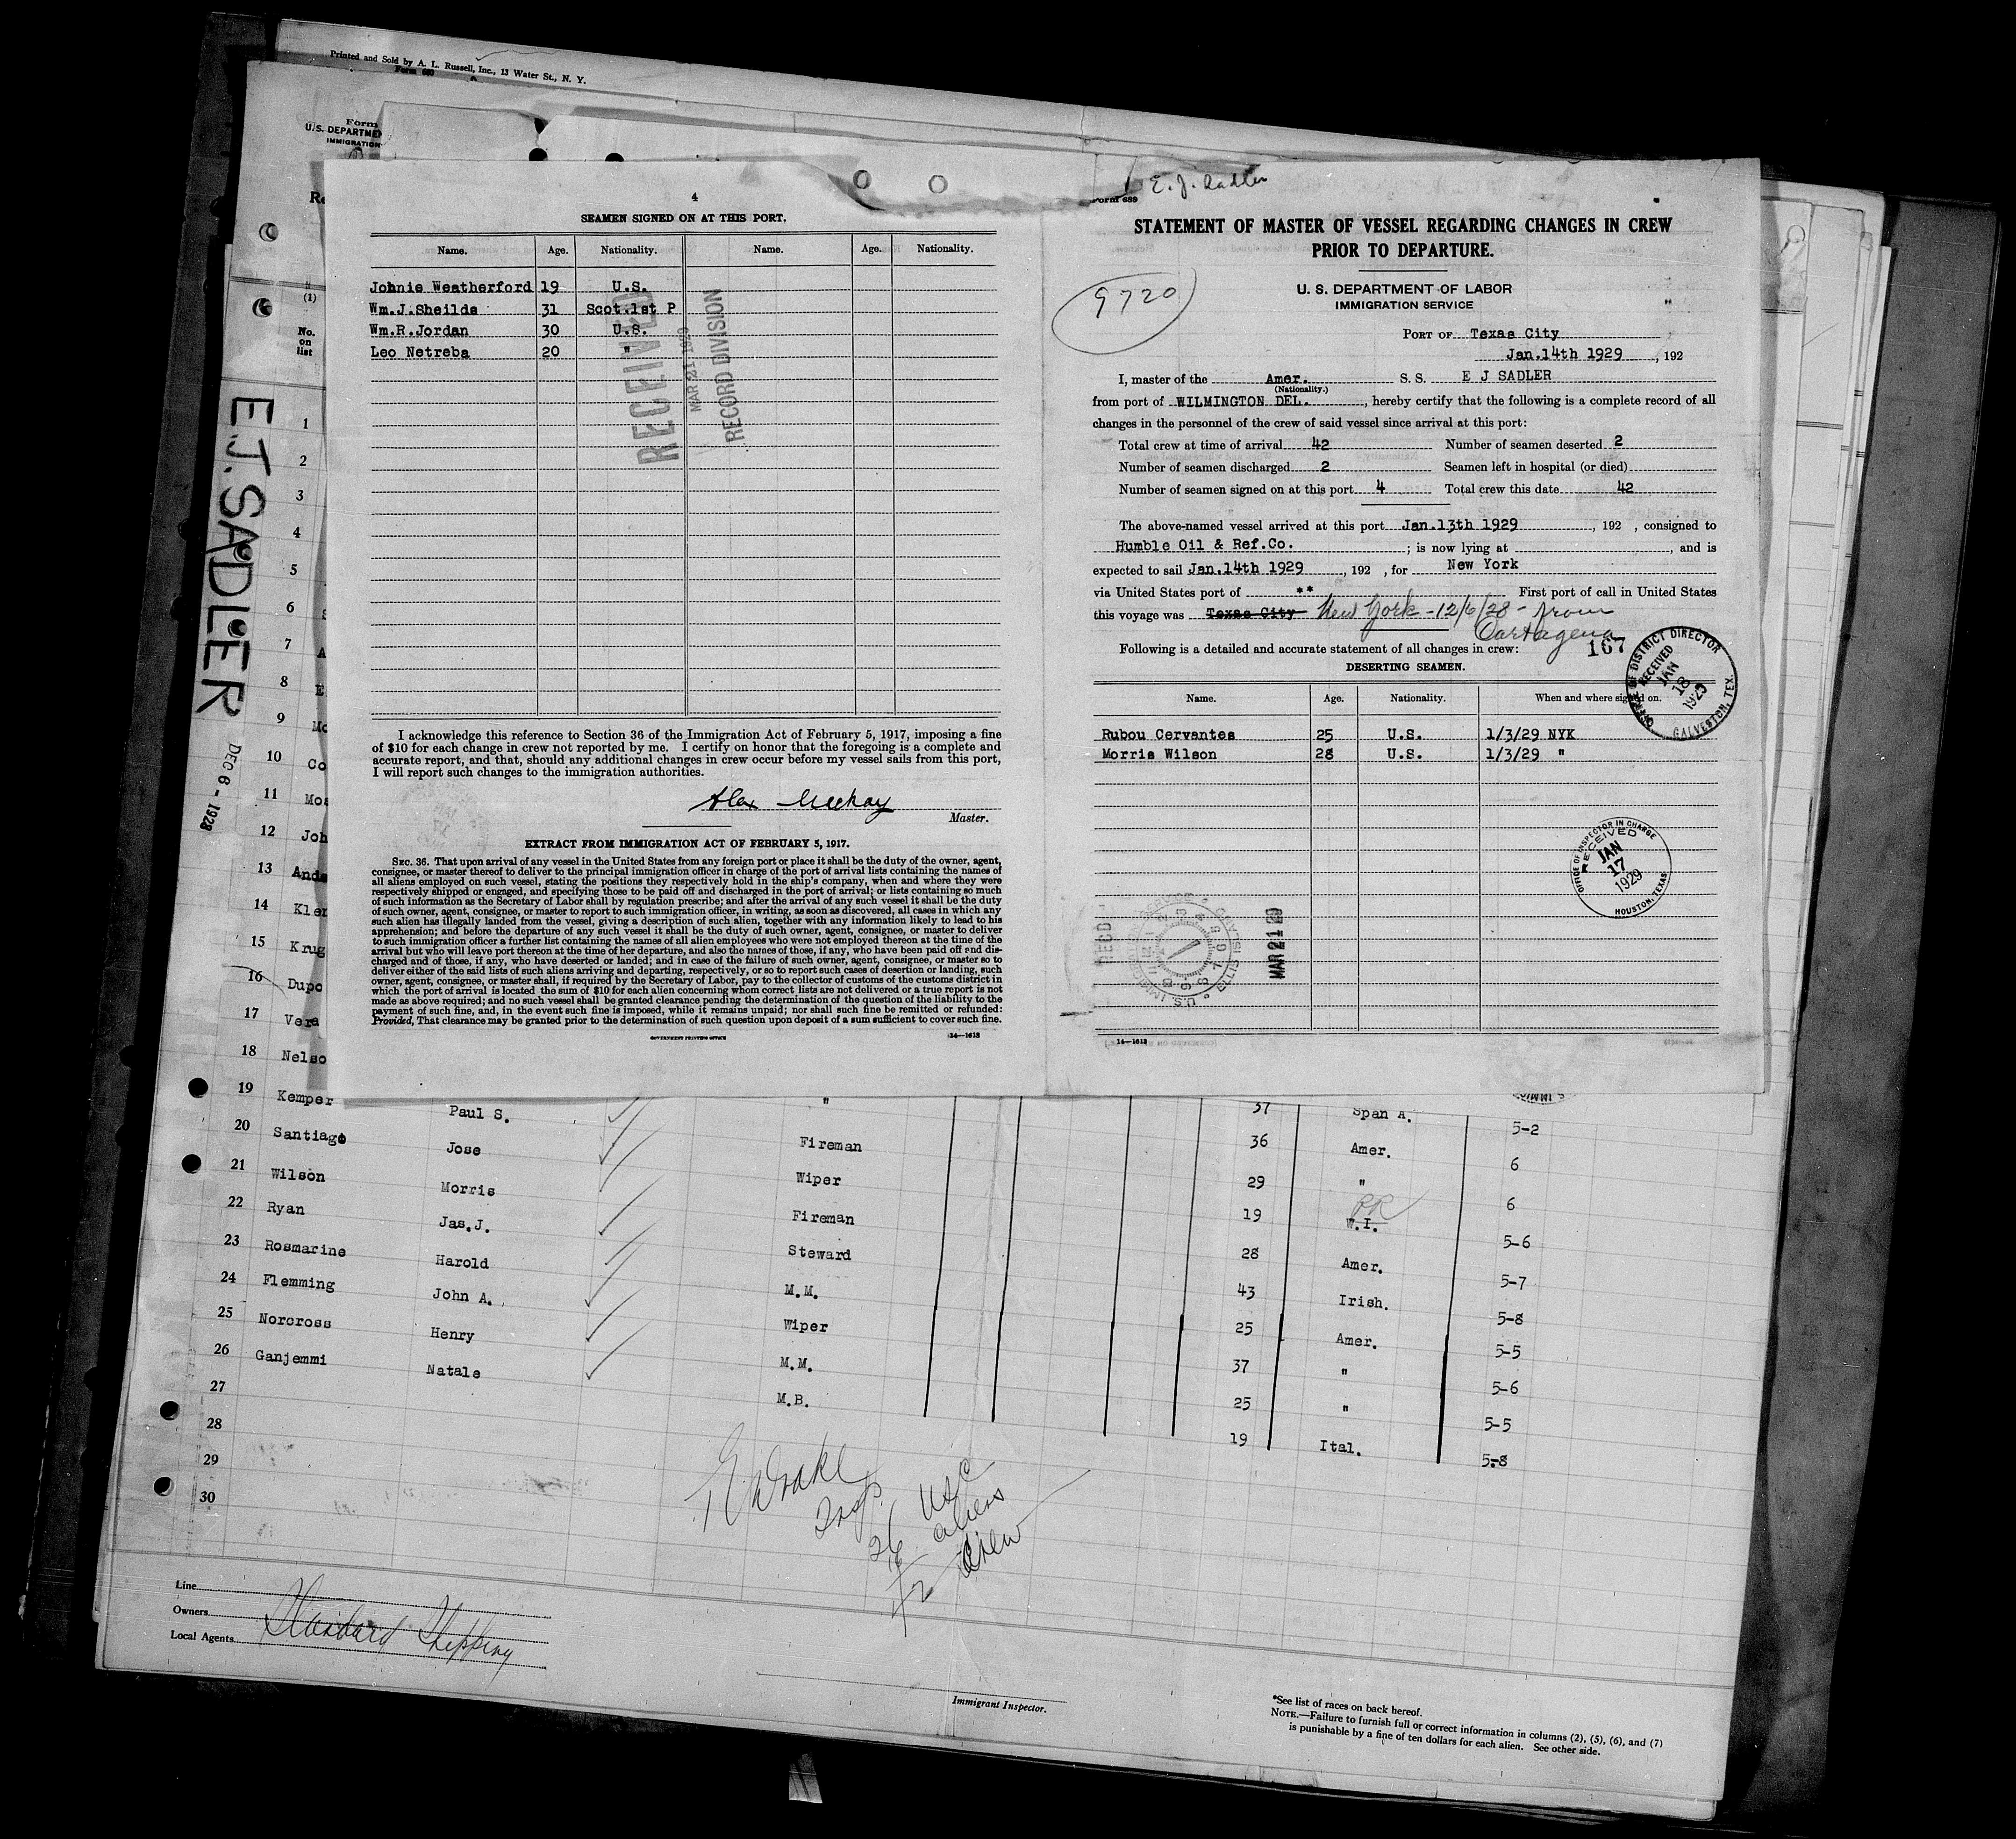 Printed and Sold by A. L. Russell, Inc., 13 Water St., N. Y.
Form 680
Form
U.S. DEPARTME
IMMIGRATION
(1)
No.
on
list
E.J. SADLER
DEC 6 - 1928
4
SEAMEN SIGNED ON AT THIS PORT.
Name. Age. Nationality. Name. Age. Nationality.
Johnie Weatherford 19 U.S.
Wm.J.Sheilds 31 Scot.1st P
Wm.R.Jordan 30 U.S.
Leo Netreba 20 "
RECEIVED
MAR 21 1929
RECORD DIVISION
I acknowledge this reference to Section 36 of the Immigration Act of February 5, 1917, imposing a fine
of $10 for each change in crew not reported by me. I certify on honor that the foregoing is a complete and
accurate report, and that, should any additional changes in crew occur before my vessel sails from this port,
I will report such changes to the immigration authorities.
Alex Mackay
Master.
EXTRACT FROM IMMIGRATION ACT OF FEBRUARY 5, 1917.
SEC. 36. That upon arrival of any vessel in the United States from any foreign port or place it shall be the duty of the owner, agent,
consignee, or master thereof to deliver to the principal immigration officer in charge of the port of arrival lists containing the names of
all aliens employed on such vessel, stating the positions they respectively hold in the ship's company, when and where they were
respectively shipped or engaged, and specifying those to be paid off and discharged in the port of arrival; or lists containing so much
of such information as the Secretary of Labor shall by regulation prescribe; and after the arrival of any such vessel it shall be the duty
of such owner, agent, consignee, or master to report to such immigration officer, in writing, as soon as discovered, all cases in which any
such alien has illegally landed from the vessel, giving a description of such alien, together with any information likely to lead to his
apprehension; and before the departure of any such vessel it shall be the duty of such owner, agent, consignee, or master to deliver
to such immigration officer a further list containing the names of all alien employees who were not employed thereon at the time of the
arrival but who will leave port thereon at the time of her departure, and also the names of those, if any, who have been paid off and dis-
charged and of those, if any, who have deserted or landed; and in case of the failure of such owner, agent, consignee, or master so to
deliver either of the said lists of such aliens arriving and departing, respectively, or so to report such cases of desertion or landing, such
owner, agent, consignee, or master shall, if required by the Secretary of Labor, pay to the collector of customs of the customs district in
which the port of arrival is located the sum of $10 for each alien concerning whom correct lists are not delivered or a true report is not
made as above required; and no such vessel shall be granted clearance pending the determination of the question of the liability to the
payment of such fine, and, in the event such fine is imposed, while it remains unpaid; nor shall such fine be remitted or refunded:
Provided, That clearance may be granted prior to the determination of such question upon deposit of a sum sufficient to cover such fine.
GOVERNMENT PRINTING OFFICE 14—1613
E. J. Sadler
Form 689
STATEMENT OF MASTER OF VESSEL REGARDING CHANGES IN CREW
PRIOR TO DEPARTURE.
9720
U. S. DEPARTMENT OF LABOR
IMMIGRATION SERVICE
PORT OF Texas City
Jan.14th 1929, 192
I, master of the Amer. S. S. E J SADLER
(Nationality.)
from port of WILMINGTON DEL., hereby certify that the following is a complete record of all
changes in the personnel of the crew of said vessel since arrival at this port:
Total crew at time of arrival 42 Number of seamen deserted 2
Number of seamen discharged 2 Seamen left in hospital (or died)
Number of seamen signed on at this port 4 Total crew this date 42
The above-named vessel arrived at this port Jan.13th 1929, 192 , consigned to
Humble Oil & Ref.Co. ; is now lying at , and is
expected to sail Jan.14th 1929, 192 , for New York
via United States port of ** First port of call in United States
this voyage was Texas City New York - 12/6/28 - from
Cartagena
Following is a detailed and accurate statement of all changes in crew: 167
OFFICE OF DISTRICT DIRECTOR
RECEIVED
JAN
18
1929
GALVESTON, TEX.
DESERTING SEAMEN.
Name. Age. Nationality. When and where signed on.
Rubou Cervantes 25 U.S. 1/3/29 NYK
Morris Wilson 28 U.S. 1/3/29 "
OFFICE OF INSPECTOR IN CHARGE
RECEIVED
JAN
17
1929
HOUSTON, TEXAS
REC'D
MAR 21 29
14—1613
1
2
3
4
5
6
7
8
9
10 Co
11 Mos
12 Joh
13 Ande
14 Kler
15 Krug
16 Dupo
17 Vera
18 Nelso
19 Kemper Paul S. " 37 Span A. 5-2
20 Santiago Jose Fireman 36 Amer. 6
21 Wilson Morris Wiper 29 " 6
22 Ryan Jas.J. Fireman 19 W.I. PR 5-6
23 Rosmarine Harold Steward 28 Amer. 5-7
24 Flemming John A. M.M. 43 Irish. 5-8
25 Norcross Henry Wiper 25 Amer. 5-5
26 Ganjemmi Natale M.M. 37 " 5-6
27 M.B. 25 " 5-5
28 19 Ital. 5-8
29
30
Drake
Insp.
26 USC
aliens
42 Crew
Line
Owners
Local Agents Standard Shipping
Immigrant Inspector.
*See list of races on back hereof.
NOTE.—Failure to furnish full or correct information in columns (2), (5), (6), and (7)
is punishable by a fine of ten dollars for each alien. See other side.